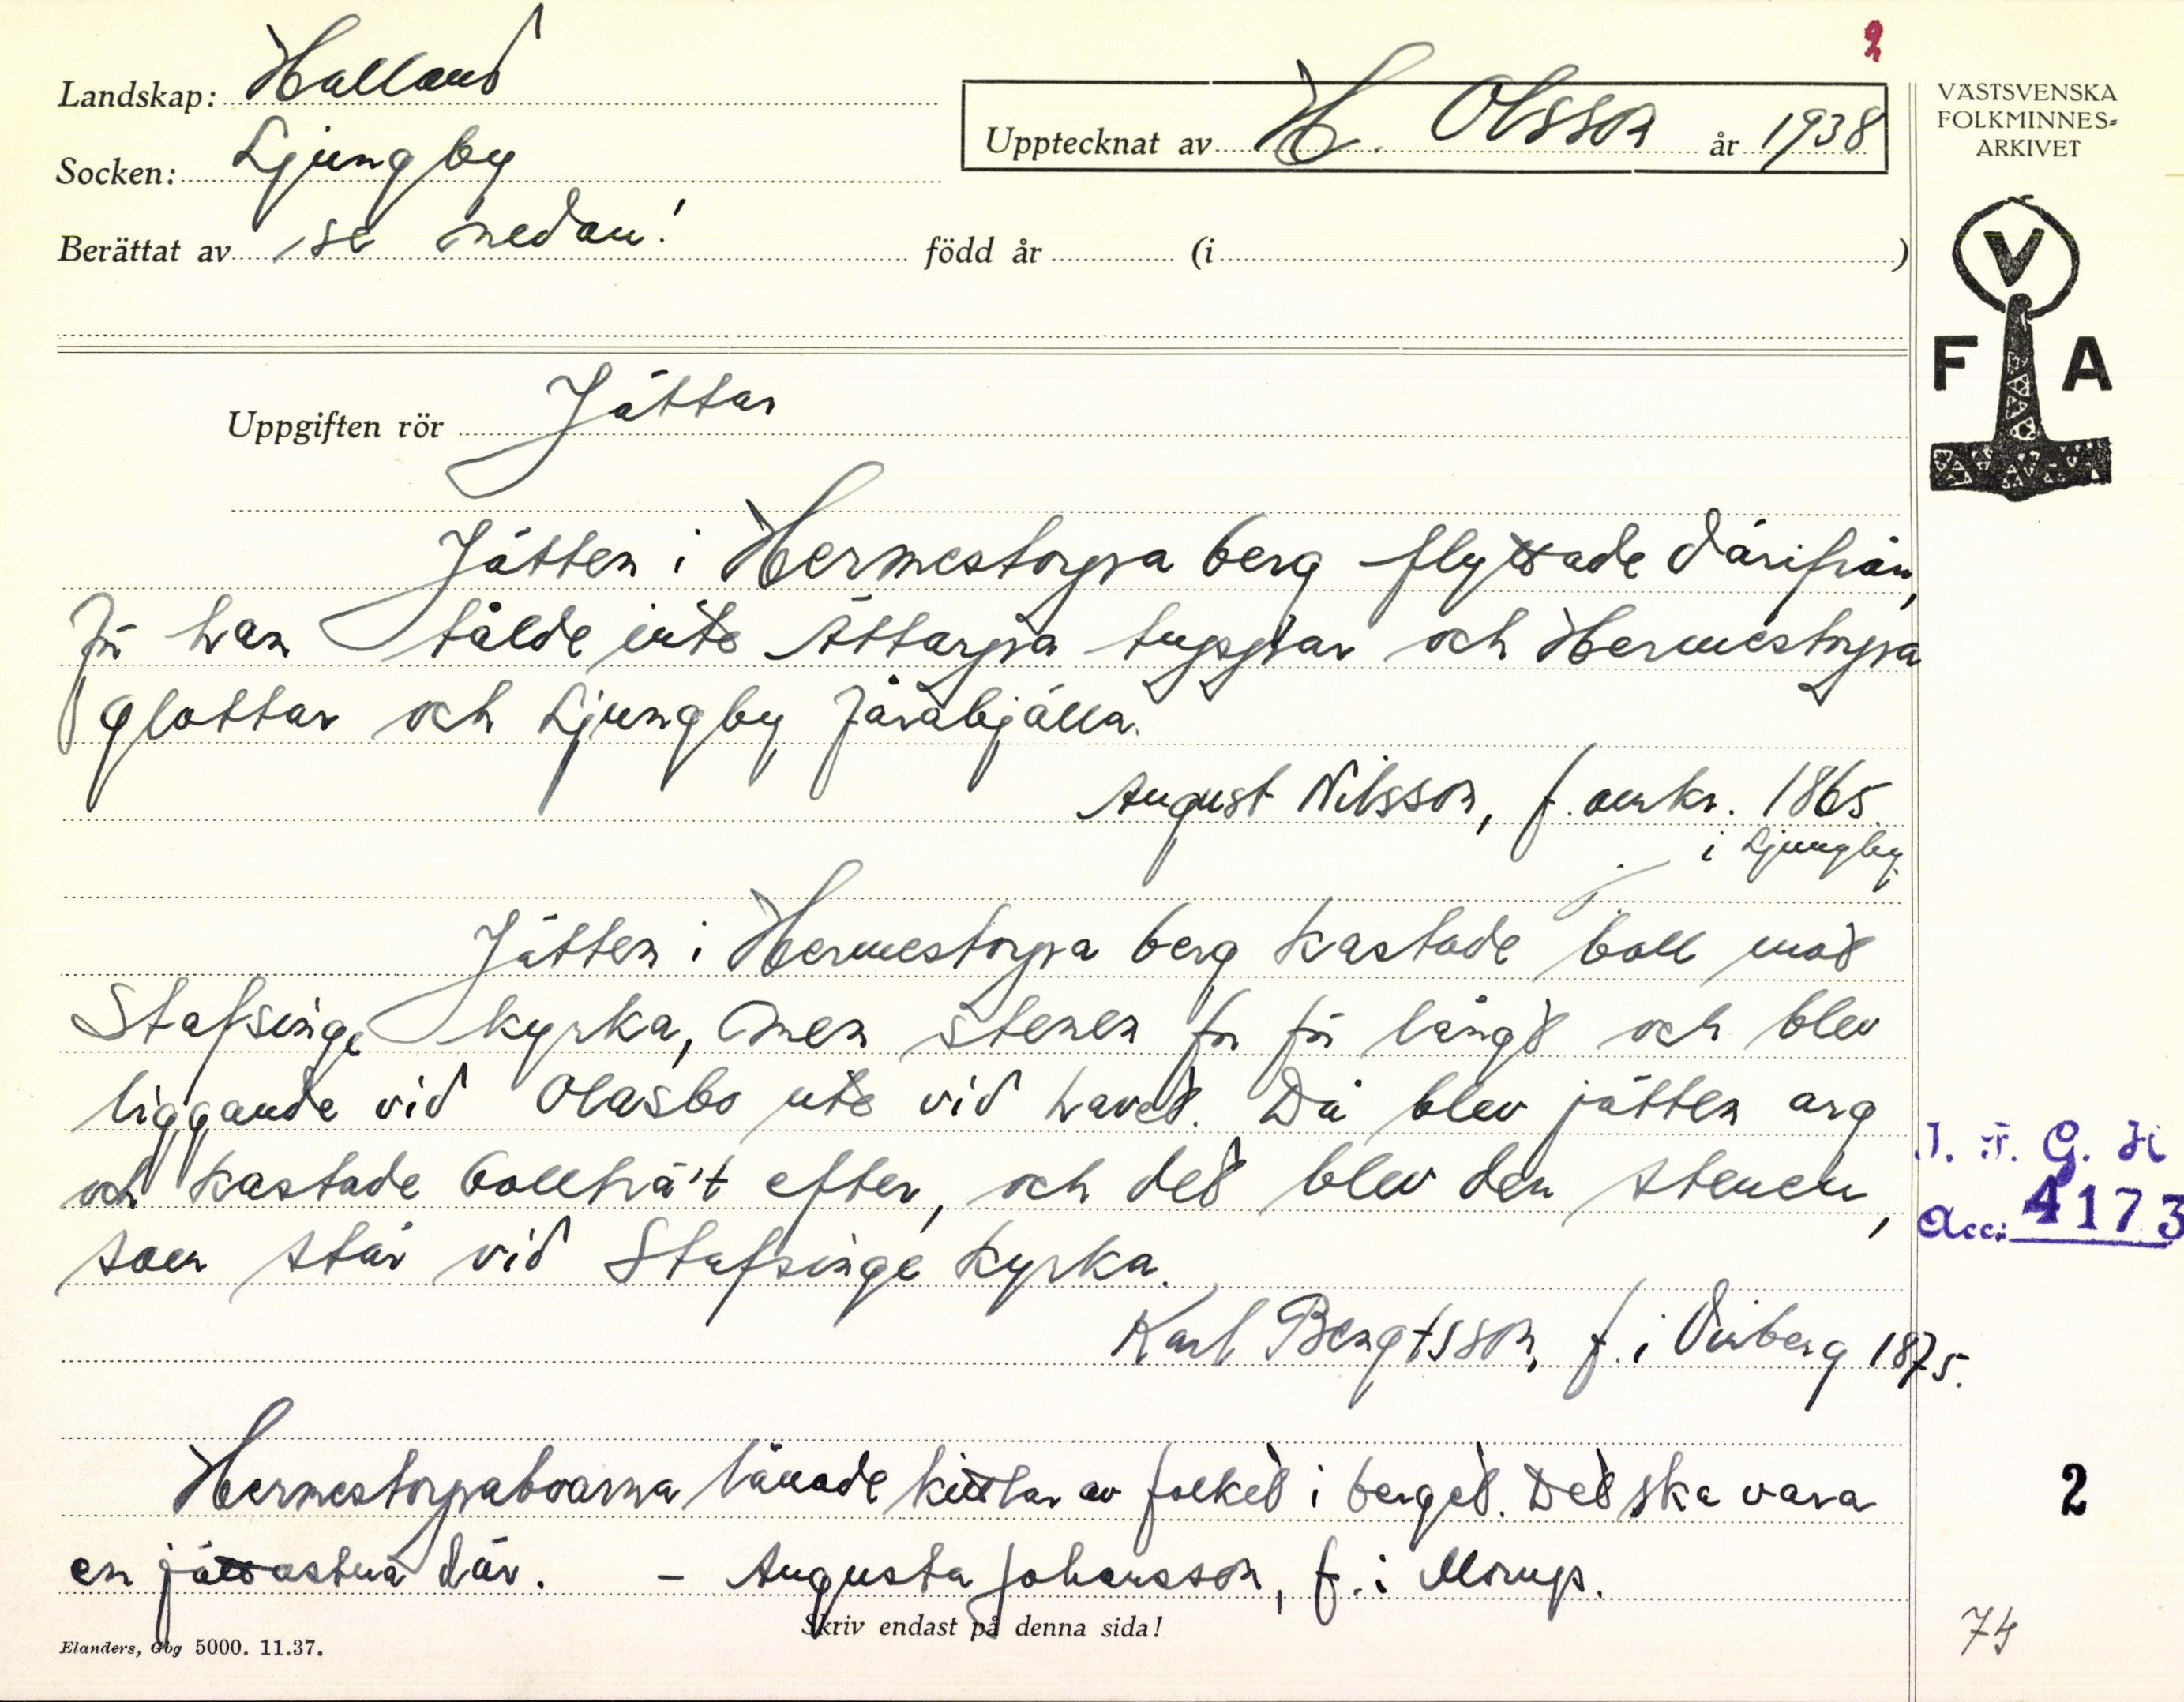 2
Landskap: Halland
Socken: Ljungby
Berättat av se nedan! född år (i )
Upptecknat av H. Olsson år 1938
VÄSTSVENSKA
FOLKMINNES-
ARKIVET
V
F A
Uppgiften rör Jättar
Jätten i Hermestorpa berg flyttade därifrån,
för han tålde inte Ättarpa tuppar och Hermestorpa
glottar och Ljungby
August Nilsson, f. omkr. 1865
i Ljungby.
Jätten i Hermestorpa berg kastade boll mot
Stafsinge kyrka, men stenen for för långt och blev
liggande vid Olasbo ute vid havet. Då blev jätten arg
och kastade bollträ't efter, och det blev den stenen,
som står vid Stafsinge kyrka.
Karl Bengtsson, f. i Vinberg 1875.
Hermestorpaboarna lånade kittlar av folket i berget. Det ska vara
en jättastua där. - Augusta Johansson, f. i Morup.
I. F. G. H
Acc: 4173
2
74
Skriv endast på denna sida!
Elanders, Gbg 5000. 11.37.